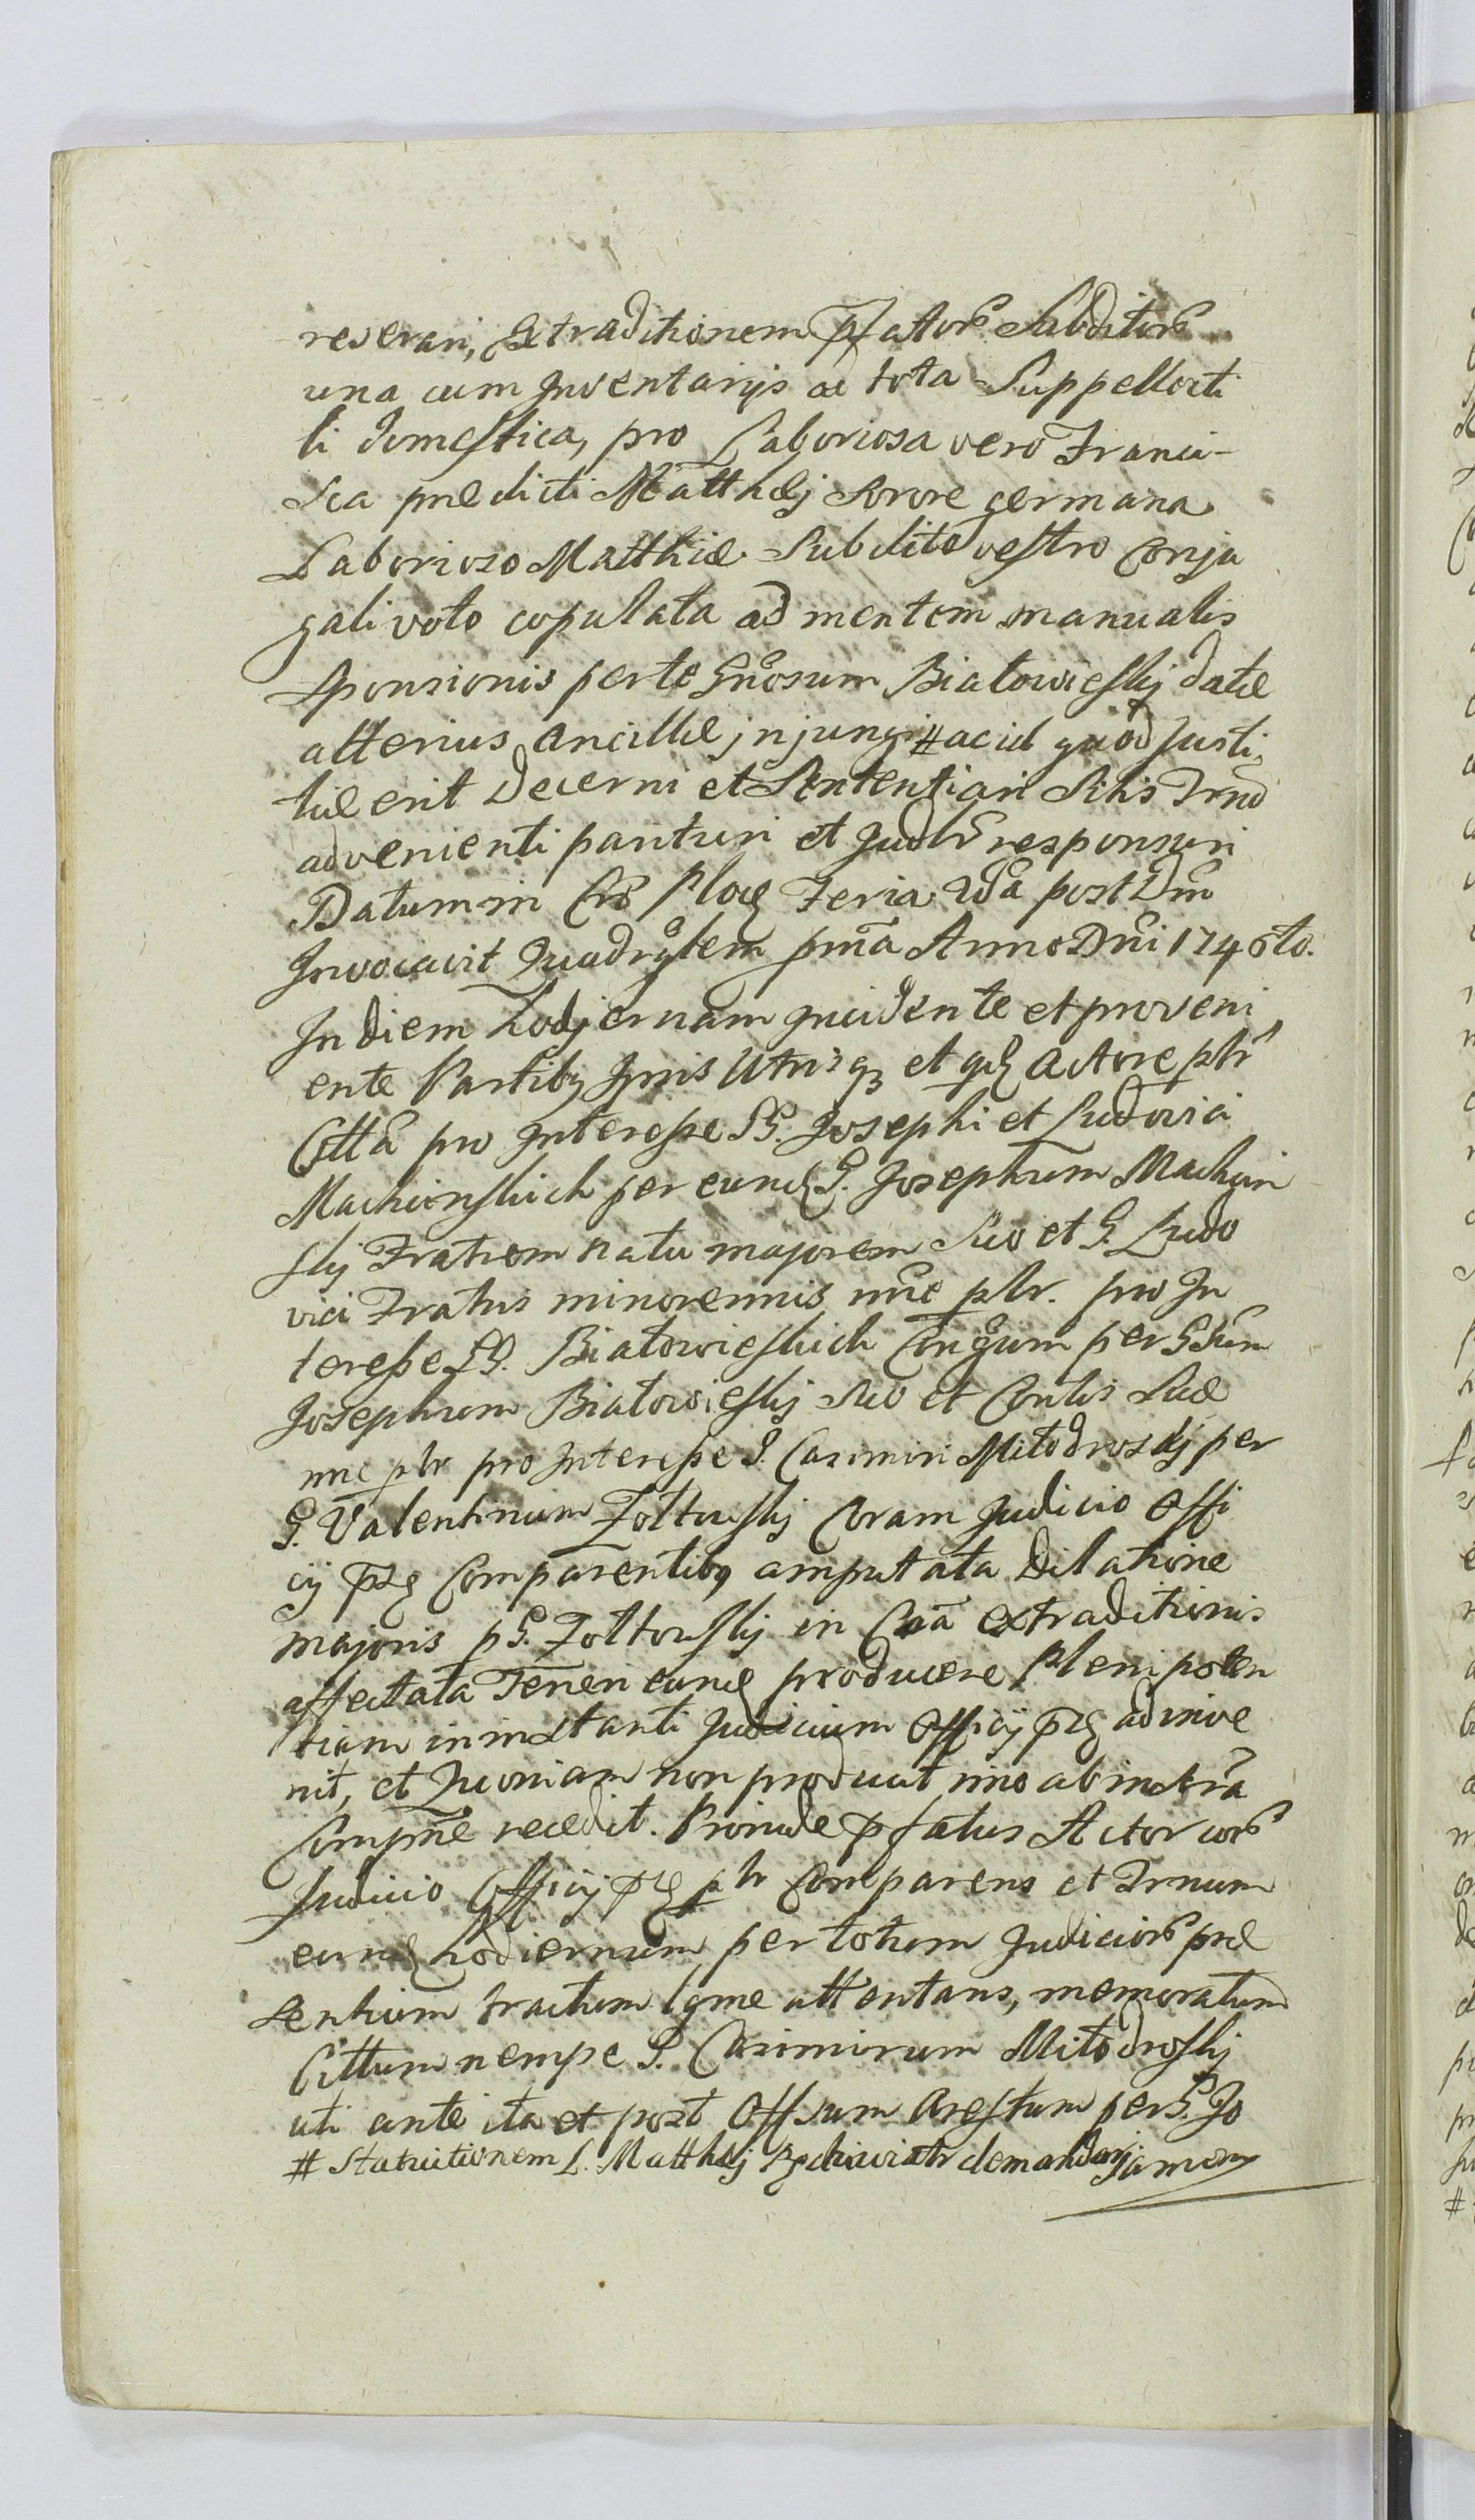 reservari, Extraditionem pfattorũ Subditorũ
una cum Inventarijs ac tota Suppellecti
li domestica, pro Laboriosa vero Franci-
sca prædicti Matthæj Sorore germana
Laborioso Matthiæ Subdito vestro Conju
gali voto copulata ad mentem manualis
Sponsionis per te Gnosum Białowieskij datæ
alterius Ancillæ jnjungi # ac id quod Justi
tiæ erit Decerni et Sententiari Sitis Trno
advenienti parituri et Judlr responsuri
Datum in Cro Ploceñ Feria 2da post Dm̃
Invocavit Quadrglem pma Anno Dni 1746to.
In diem hodjernam Incidente et proveni
ente Partibq Ipsis Utrisq et qdẽ Actore pltr
Citta pro Interesse GG. Josephi et Ludovici
Machcinskich per eund G. Josephum Machcin
skij Fratrem natu majorem Suo et G. Ludo
vici Fratris minorennis nne pltr. pro In
teresse GG. Białowieskich Congum per GSum
Josephum Białowieskij Suo et Contis Suæ
nne pltr pro Interesse G. Casimiri Miłodroskij per
G. Valentinum Zołtowskij Coram Judicio Offi
cij Comparentibq amputata Dilatione
majoris p G. Zołtowskij in Caa extraditionis
affectata Teneri eund producere Plenipoten
tiam in instanti Judicium Officij adinve
nit, et Quoniam non producit imo ab instra
Compne recedit. Proinde pfatus Actor corũ
Judicio Officij pltr Comparens et Trnum
eund hodiernum per totum Judiciorũ præ
sentium tractum lgme attentans, memoratum
Cittum nempe G. Casimirum Miłodroskij
uti ante ita et post Offsum Arestum per G. Jo
# Statuitionem L. Matthæj demandari jamõñ